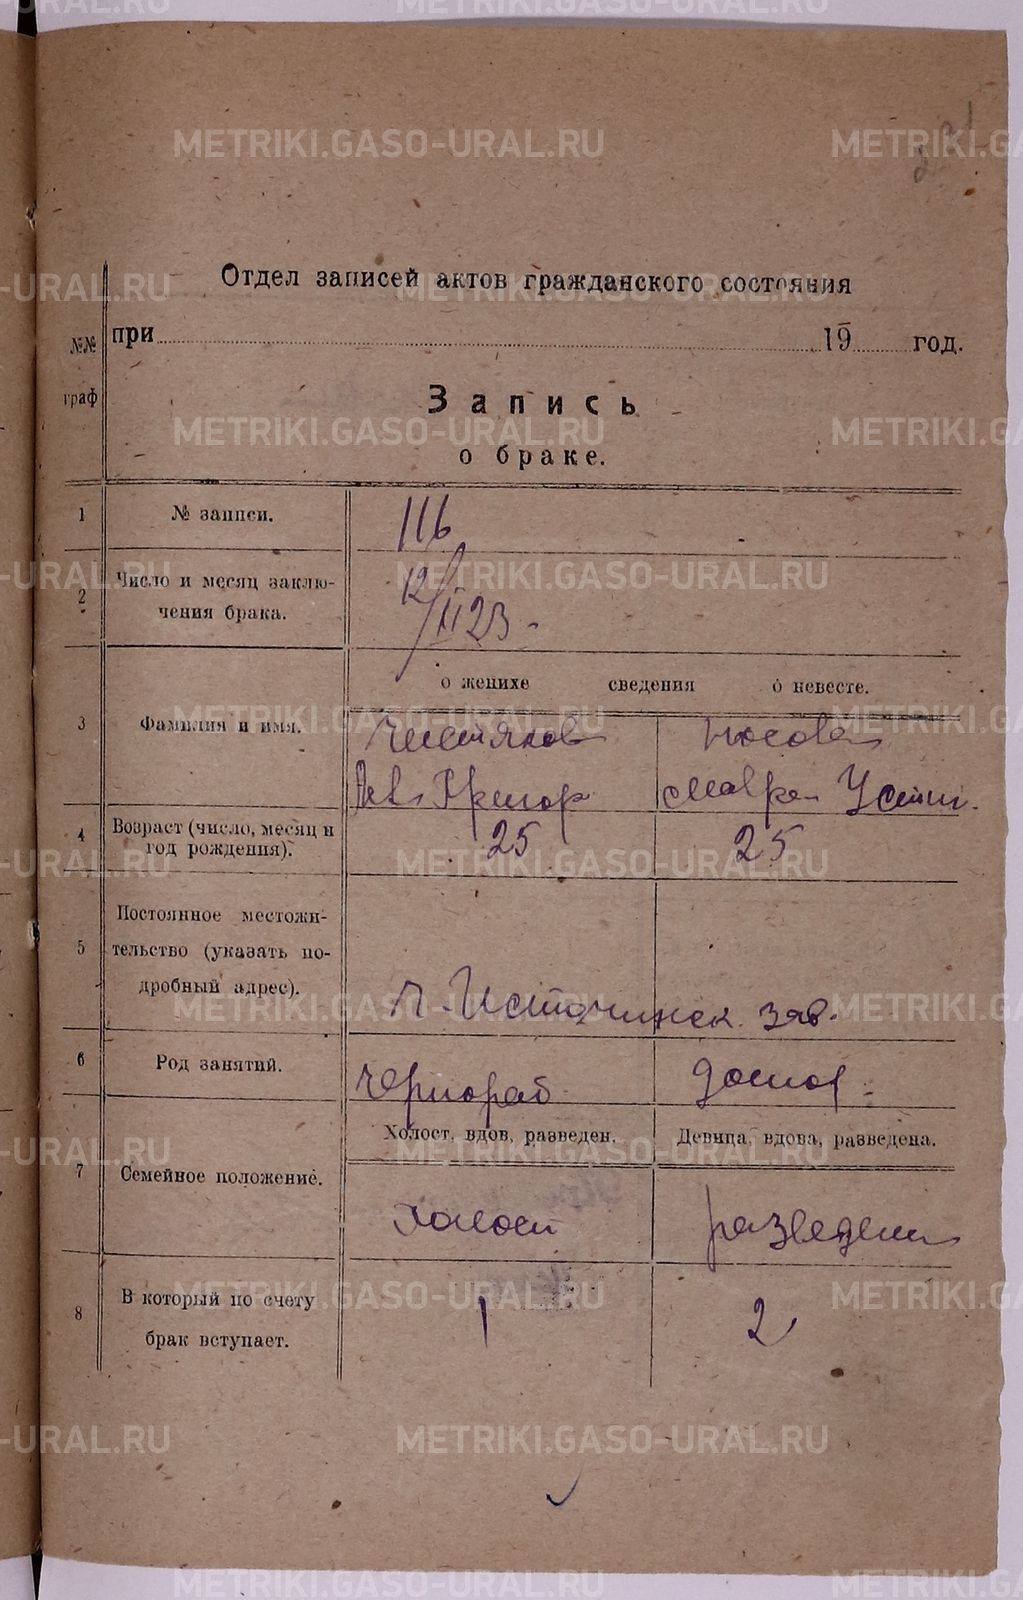 METRIKI.GASO-URAL.RU
Отдел записей актов гражданского состояния
№№ при 19 год.
граф
Запись
о браке.
1 № записи. 116
2 Число и месяц заклю-
чения брака. 12/II 23
о женихе сведения о невесте.
3 Фамилия и имя. Чистяков Носова
Григор Мавра Устин.
4 Возраст (число, месяц и
год рождения). 25 25
5 Постоянное местожи-
тельство (указать по-
дробный адрес).
Н-Исетчинск зав.
6 Род занятий. Чернораб домох
Холост, вдов, разведен. Девица, вдова, разведена.
7 Семейное положение.
Холост разведен
8 В который по счету
брак вступает. 1 2